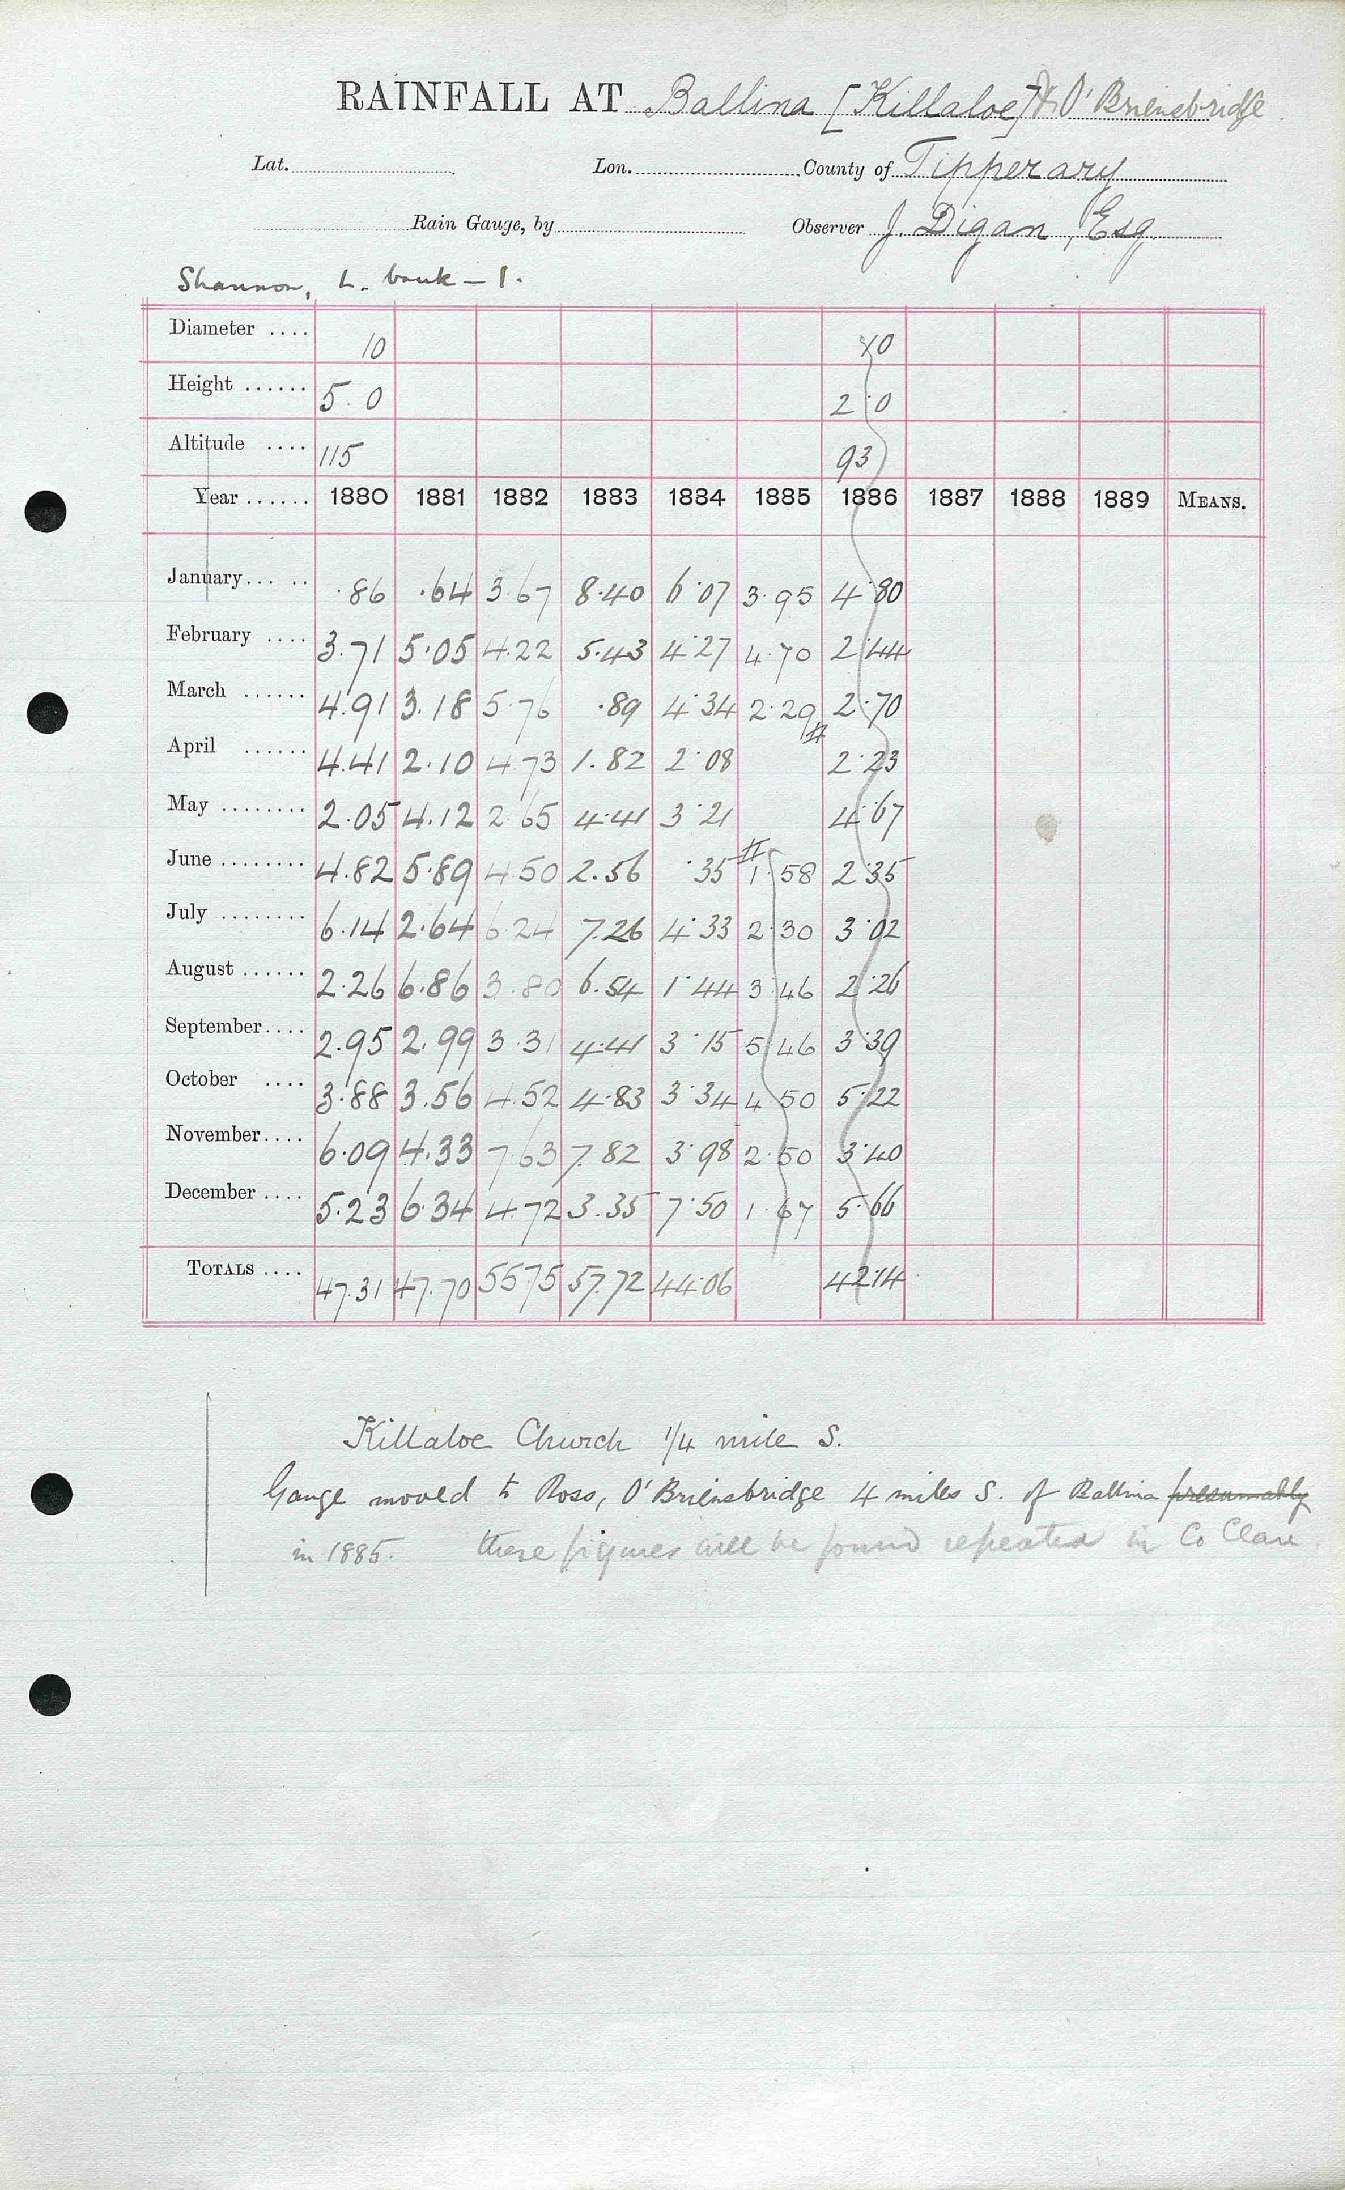 RAINFALL AT Ballina [Killaloe] & O'Briensbridge
Lat. Lon. County of Tipperary
Rain Gauge, by Observer J. Digan, Esq.
Shannon, L. bank – 1.
Diameter .... 10 10
Height ...... 5.0 2.0
Altitude .... 115 93
Year ...... 1880 1881 1882 1883 1884 1885 1886 1887 1888 1889 MEANS.
January... .. .86 .64 3.67 8.40 6.07 3.95 4.80
February .... 3.71 5.05 4.22 5.43 4.27 4.70 2.44
March ...... 4.91 3.18 5.76 .89 4.34 2.29 2.70
April ...... 4.41 2.10 4.73 1.82 2.08 # 2.23
May ........ 2.05 4.12 2.65 4.41 3.21 4.67
June ........ 4.82 5.89 4.50 2.56 .35 # 1.58 2.35
July ........ 6.14 2.64 6.24 7.26 4.33 2.30 3.02
August ...... 2.26 6.86 3.80 6.54 1.44 3.46 2.26
September.... 2.95 2.99 3.31 4.41 3.15 5.46 3.39
October .... 3.88 3.56 4.52 4.83 3.34 4.50 5.22
November.... 6.09 4.33 7.63 7.82 3.98 2.50 3.40
December .... 5.23 6.34 4.72 3.35 7.50 1.67 5.66
TOTALS .... 47.31 47.70 55.75 57.72 44.06 42.14
Killaloe Church 1/4 mile S.
Gauge moved to Ross, O'Briensbridge 4 miles S. of Ballina presumably
in 1885. these figures will be found repeated in Co Clare.